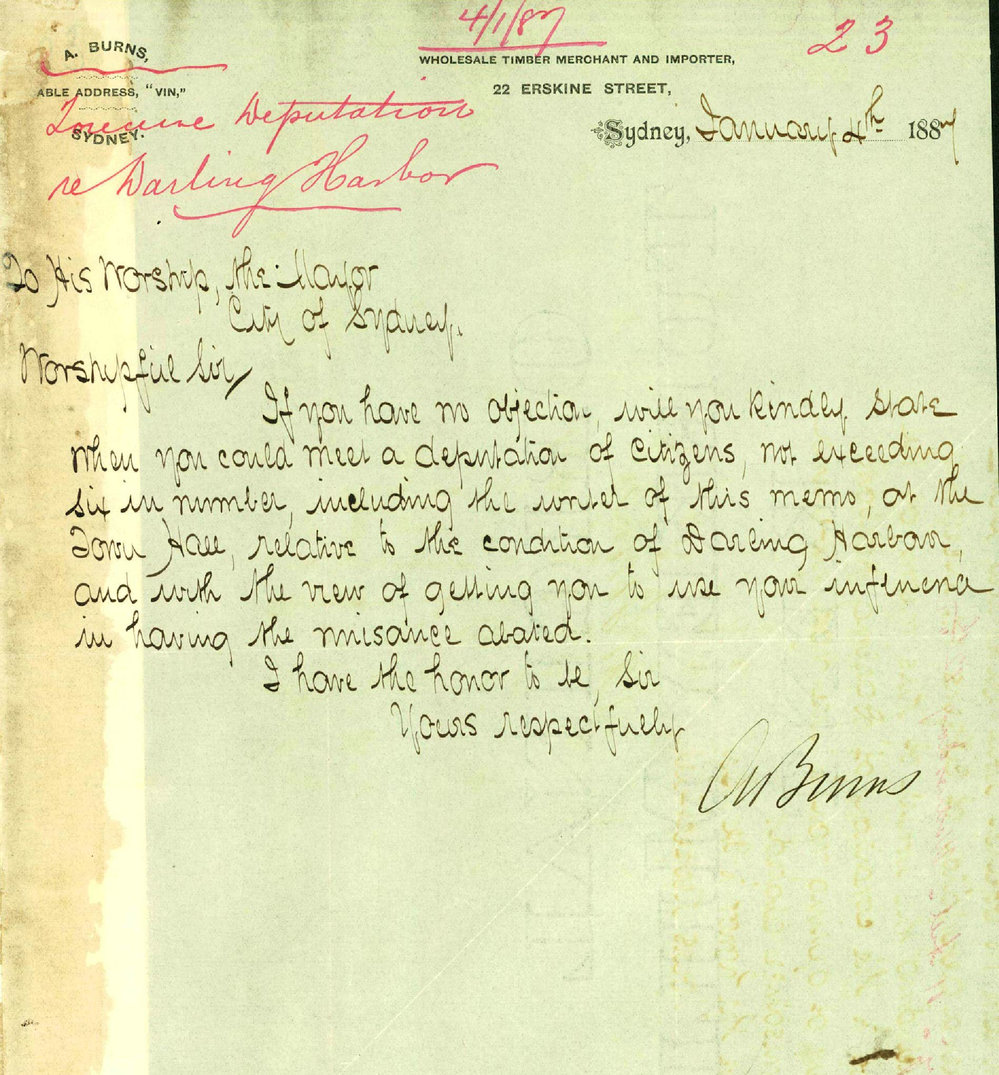 4/1/87
23
A. BURNS,
ABLE ADDRESS, "VIN,"
SYDNEY.
WHOLESALE TIMBER MERCHANT AND IMPORTER,
22 ERSKINE STREET,
Sydney, January 4th 1887
Deputation
re Darling Harbor
To His Worship, the Mayor
City of Sydney.
Worshipful Sir,
If you have no objection, will you kindly state
when you could meet a deputation of citizens, not exceeding
six in number, including the writer of this memo, at the
Town Hall, relative to the condition of Darling Harbour,
and with the view of getting you to use your influence
in having the nuisance abated.
I have the honor to be, Sir
Yours respectfully
A Burns